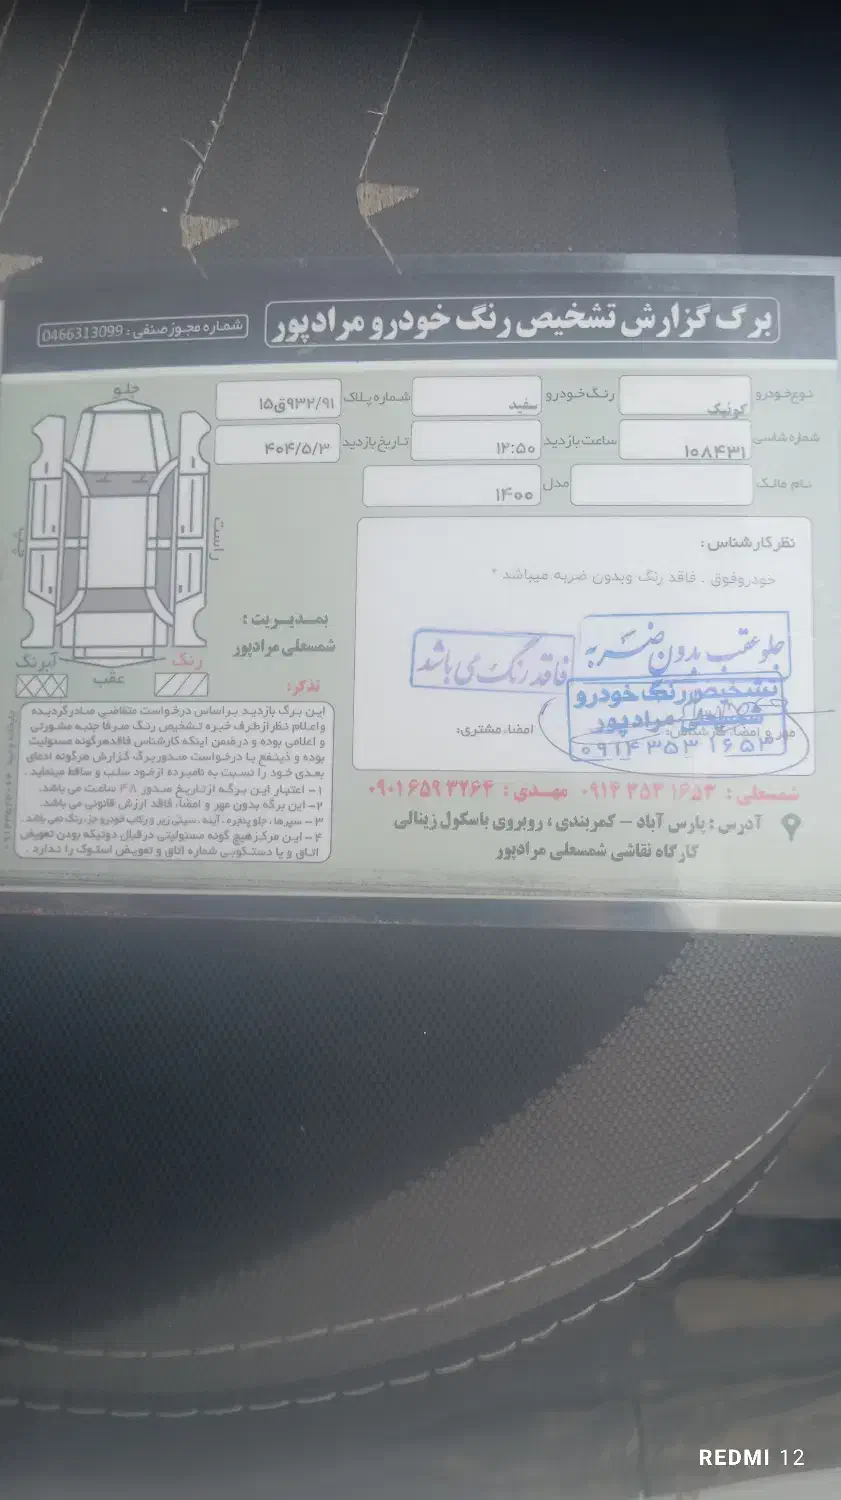 برگ گزارش تشخیص رنگ خودرو مرادپور
شماره مجوز صنفی : 0466313099
نوع خودرو کوئیک رنگ خودرو سفید شماره پلاک ۹۳۲/۹۱ق۱۵
شماره شاسی ۱۰۸۴۳۱ ساعت بازدید ۱۲:۵۰ تاریخ بازدید ۴۰۴/۵/۳
نام مالک مدل ۱۴۰۰
جلو
راست
چپ
عقب
رنگ
آبرنگ
نظر کارشناس :
خودروفوق . فاقد رنگ وبدون ضربه میباشد *
جلو عقب بدون ضربه
فاقد رنگ می باشد
تشخیص رنگ خودرو
شمسعلی مرادپور
۰۹۱۴۳۵۳۱۶۵۳
مهر و امضاء کارشناس:
امضاء مشتری:
بمدیریت :
شمسعلی مرادپور
تذکر:
این برگ بازدید براساس درخواست متقاضی صادرگردیده
واعلام نظر ازطرف خبره تشخیص رنگ صرفا جنبه مشورتی
و اعلامی بوده و درضمن اینکه کارشناس فاقدهرگونه مسئولیت
بوده و ذینفع با درخواست صدوربرگ گزارش هرگونه ادعای
بعدی خود را نسبت به نامبرده ازخود سلب و ساقط مینماید .
۱- اعتبار این برگه از تاریخ صدور ۴۸ ساعت می باشد.
۲- این برگه بدون مهر و امضاء فاقد ارزش قانونی می باشد.
۳- سپرها، جلو پنجره، آینه، سینی زیر و رکاب خودرو جز، رنگ نمی باشد.
۴- این مرکز هیچ گونه مسئولیتی درقبال دوتیکه بودن تعویض
اتاق و یا دستکوبی شماره اتاق و تعویض استوک را ندارد .
شمسعلی : ۰۹۱۴ ۳۵۳ ۱۶۵۳ مهدی : ۰۹۰۱ ۶۵۹ ۳۲۶۴
آدرس : پارس آباد - کمربندی ، روبروی باسکول زینالی
کارگاه نقاشی شمسعلی مرادپور
REDMI 12